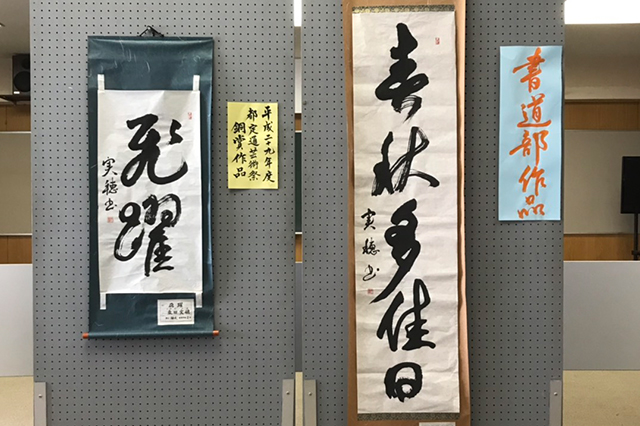 飛躍
実穂書
平成二九年度
都定通芸術祭
銅賞作品
春秋多佳日
実穂書
書道部作品